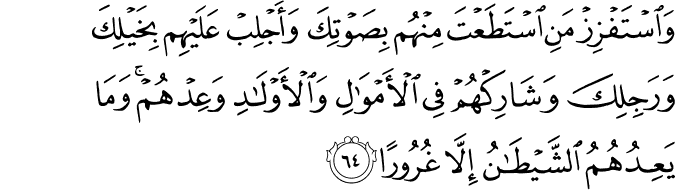 وَٱسْتَفْزِزْ مَنِ ٱسْتَطَعْتَ مِنْهُم بِصَوْتِكَ وَأَجْلِبْ عَلَيْهِم بِخَيْلِكَ
وَرَجِلِكَ وَشَارِكْهُمْ فِى ٱلْأَمْوَٰلِ وَٱلْأَوْلَـٰدِ وَعِدْهُمْ ۚ وَمَا
يَعِدُهُمُ ٱلشَّيْطَـٰنُ إِلَّا غُرُورًا ٦٤